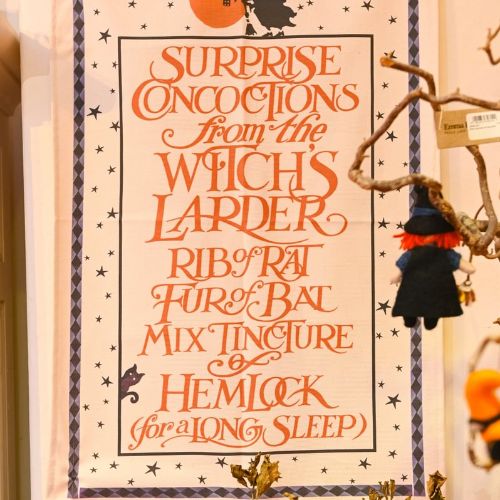 SURPRISE
CONCOCTIONS
from the
WITCH'S
LARDER
RIB of RAT
FUR of BAT
MIX TINCTURE
of
HEMLOCK
(for a LONG SLEEP)
Emma